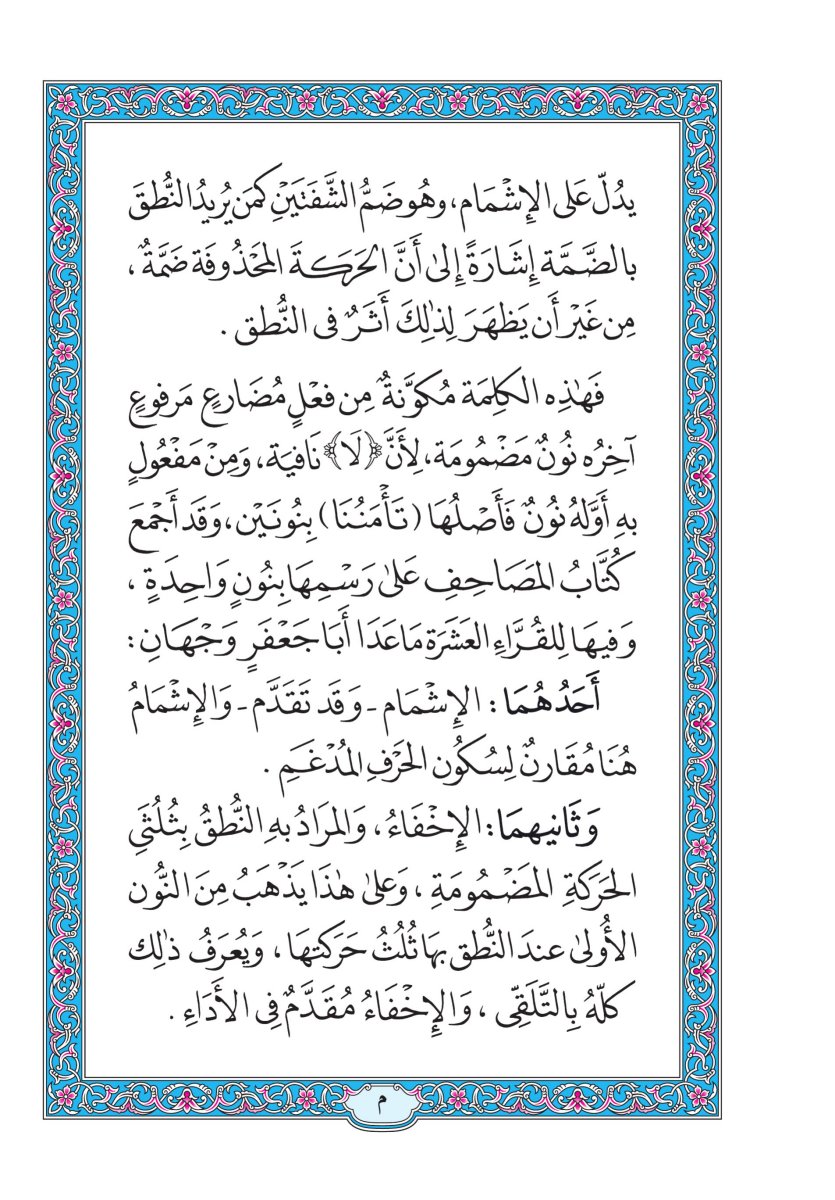 يدُلّ عَلى الإِشْمَام، وهُو ضَمُّ الشَّفَتَيْنِ كمَن يُريدُ النُّطقَ
بالضَّمَّة إِشَارَةً إِلىٰ أَنَّ الحَرَكَةَ المَحْذُوفَة ضَمَّةٌ،
مِن غَيْر أَن يَظهَرَ لِذٰلِكَ أَثَرٌ فى النُّطق.
فَهٰذِه الكلِمَة مُكَوَّنَةٌ مِن فعْلٍ مُضَارعٍ مَرفوعٍ
آخِرُه نُونٌ مَضْمُومَة، لِأَنَّ ﴿لَا﴾ نَافيَة، وَمِنْ مَفْعُولٍ
بهِ أَوَّلهُ نُونٌ فَأَصْلُهَا (تَأْمَنُنَا) بِنُونَيْن، وَقَد أَجْمَعَ
كُتَّابُ المصَاحِفِ عَلىٰ رَسْمِهَا بِنُونٍ وَاحِدَةٍ،
وَفيهَا لِلقُرَّاءِ العَشَرَة مَاعَدَا أَبَا جَعْفَرٍ وَجْهَانِ:
أَحَدُهُمَا: الإِشْمَام ـ وَقَد تَقَدَّم ـ وَالإِشْمَامُ
هُنَا مُقَارنٌ لِسُكُون الحَرْفِ المُدْغَمِ.
وَثَانيهمَا: الإِخْفَاءُ، وَالمرَادُ بهِ النُّطقُ بِثُلُثَي
الحَرَكَةِ المَضْمُومَةِ، وَعَلىٰ هٰذَا يَذْهَبُ مِنَ النُّون
الأُولىٰ عندَ النُّطق بهَا ثُلُثُ حَرَكتهَا، وَيُعرَفُ ذٰلِك
كلّهُ بِالتَّلَقِّى، وَالإِخْفَاءُ مُقَدَّمٌ فِى الأَدَاءِ.
م